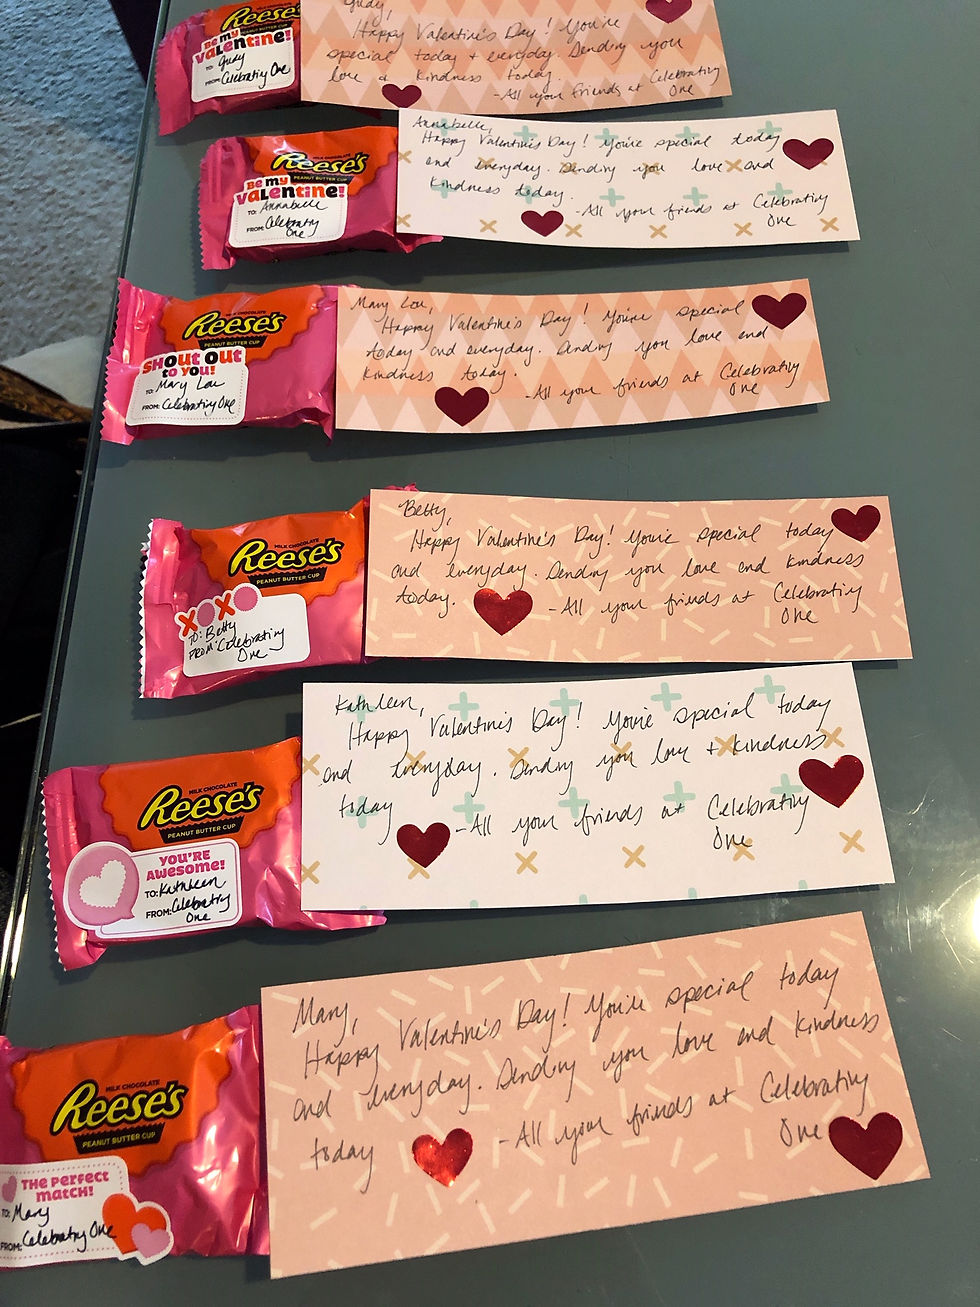 REESE'S
PEANUT BUTTER CUP
Be my
valentine!
TO: Judy
FROM: Celebrating One
Judy,
Happy Valentine's Day! You're
special today + everyday. Sending you
love & kindness today.
-All your friends at Celebrating
One
MILK CHOCOLATE
REESE'S
PEANUT BUTTER CUP
Be my
valentine!
TO: Annabelle
FROM: Celebrating
One
Annabelle,
Happy Valentine's Day! You're special today
and everyday. Sending you love and
kindness today.
-All your friends at Celebrating
One
MILK CHOCOLATE
REESE'S
PEANUT BUTTER CUP
SHOUT OUT
to you!
TO: Mary Lou
FROM: Celebrating One
Mary Lou,
Happy Valentine's Day! You're special
today and everyday. Sending you love and
kindness today.
-All your friends at Celebrating
One
MILK CHOCOLATE
REESE'S
PEANUT BUTTER CUP
XOXO
TO: Betty
FROM: Celebrating
One
Betty,
Happy Valentine's Day! You're special today
and everyday. Sending you love and kindness
today.
-All your friends at Celebrating
One
MILK CHOCOLATE
REESE'S
PEANUT BUTTER CUP
YOU'RE
AWESOME!
TO: Kathleen
FROM: Celebrating
One
Kathleen,
Happy Valentine's Day! You're special today
and everyday. Sending you love + kindness
today
-All your friends at Celebrating
One
MILK CHOCOLATE
REESE'S
PEANUT BUTTER CUP
THE PERFECT
MATCH!
TO: Mary
FROM: Celebrating One
Mary,
Happy Valentine's Day! You're special today
and everyday. Sending you love and kindness
today
-All your friends at Celebrating
One